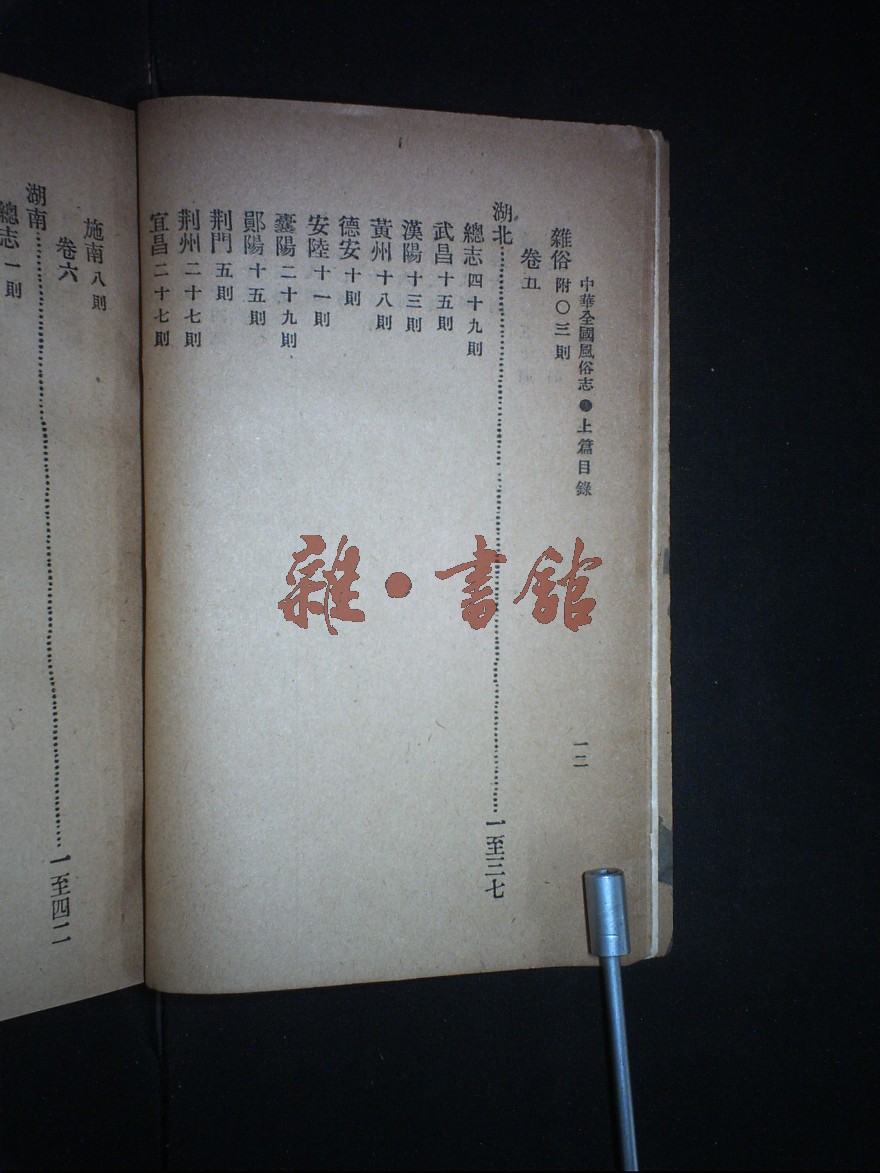 中華全國風俗志●上篇目錄 一二
雜俗 附〇三則
卷五
湖北……一至三七
總志 四十九則
武昌 十五則
漢陽 十三則
黃州 十八則
德安 十則
安陸 十一則
襄陽 二十九則
鄖陽 十五則
荆門 五則
荆州 二十七則
宜昌 二十七則
施南 八則
卷六
湖南……一至四二
總志 一則
雜·書館